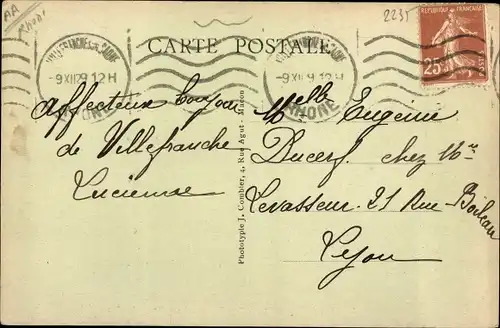 AA
Rhone
2235
CARTE POSTALE
REPUBLIQUE FRANÇAISE
25c
VILLEFRANCHE-S-SAONE
-9 XII 29 12H
RHONE
VILLEFRANCHE-S-SAONE
-9 XII 29 12H
RHONE
Affectueux bonjour
de Villefranche
Lucienne
Phototypie J. Combier, 4, Rue Agut - Macon
Melle Eugénie
chez Mr
Levasseur 21 Rue Boileau
Lyon